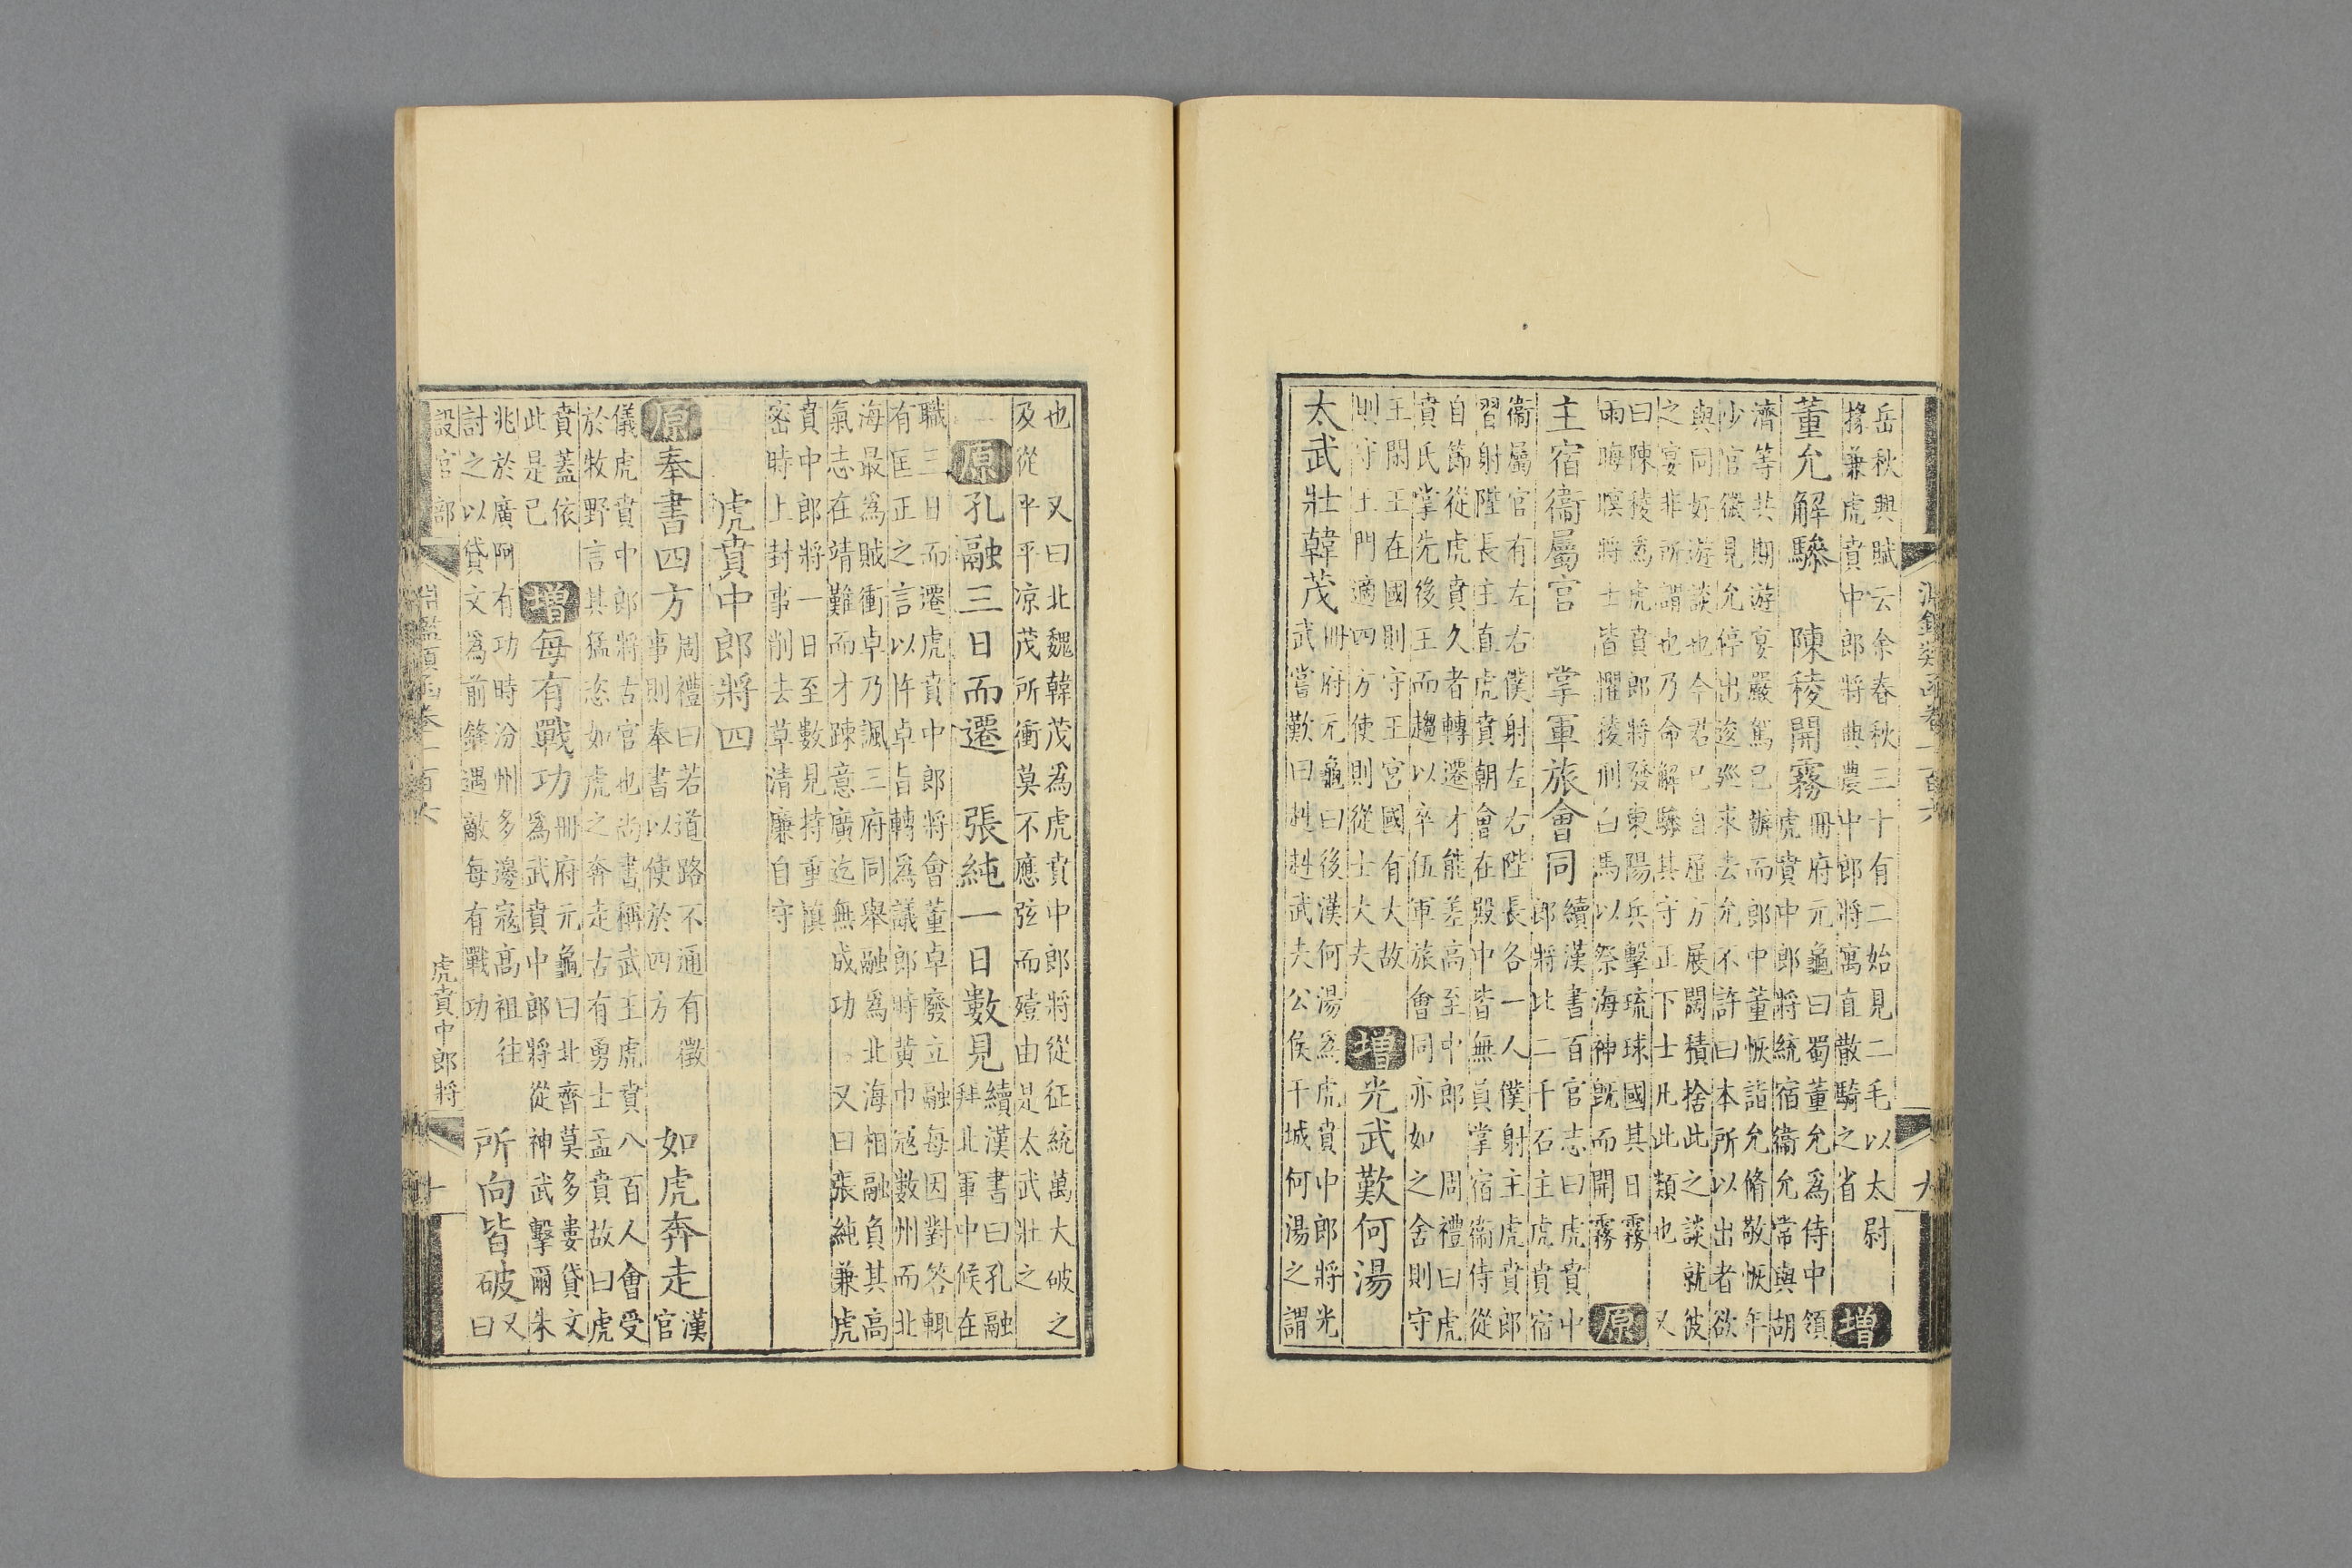 岳秋興賦云余春秋三十有二始見二毛以太尉
掾兼虎賁中郎將典農中郎將寓直散騎之省 增
董允解驂 陳稜開霧 冊府元龜曰蜀董允爲侍中領
虎賁中郎將統宿衞允常與胡
濟等共期游宴嚴駕已辦而郎中董恢詣允脩敬恢年
少官微見允停出逡廵求去允不許曰本所以出者欲
與同好遊談也今君已自屈方展闊積捨此之談就彼
之宴非所謂也乃命解驂其守正下士凡此類也 又
曰陳稜爲虎賁郎將發東陽兵擊琉球國其日霧
雨晦暝將士皆懼稜刑白馬以祭海神旣而開霧 原
主宿衞屬官 掌軍旅會同 續漢書百官志曰虎賁中
郎將比二千石主虎賁宿
衞屬官有左右僕射左右陛長各一人僕射主虎賁郎
習射陛長主直虎賁朝會在殿中皆無員掌宿衞侍從
自節從虎賁久者轉遷才能差高至中郎 周禮曰虎
賁氏掌先後王而趨以卒伍軍旅會同亦如之舍則守
王閑王在國則守王宮國有大故
則守王門適四方使則從士大夫 增 光武歎何湯
太武壯韓茂 冊府元龜曰後漢何湯爲虎賁中郎將光
武嘗歎曰赳赳武夫公侯干城何湯之謂
也 又曰北魏韓茂爲虎賁中郎將從征統萬大破之
及從平平凉茂所衝莫不應弦而殪由是太武壯之
原 孔融三日而遷 張純一日數見 續漢書曰孔融
拜北軍中候在
職三日而遷虎賁中郎將會董卓廢立融每因對答輒
有匡正之言以忤卓旨轉爲議郎時黄巾寇數州而北
海最爲賊衝卓乃諷三府同舉融爲北海相融負其高
氣志在靖難而才踈意廣迄無成功 又曰張純兼虎
賁中郎將一日至數見持重慎
密時上封事削去草清廉自守
虎賁中郎將四
原 奉書四方 周禮曰若道路不通有徵
事則奉書以使於四方 如虎奔走 漢
官
儀虎賁中郎將古官也尚書稱武王虎賁八百人會受
於牧野言其猛恣如虎之奔走古有勇士孟賁故曰虎
賁蓋依
此是已 增 每有戰功 冊府元龜曰北齊莫多婁貸文
爲武賁中郎將從神武擊爾朱
兆於廣阿有功時汾州多邊寇高祖往
討之以貸文爲前鋒遇敵每有戰功 所向皆破 又
曰
淵鑑類函卷一百六
虎賁中郎將
設官部